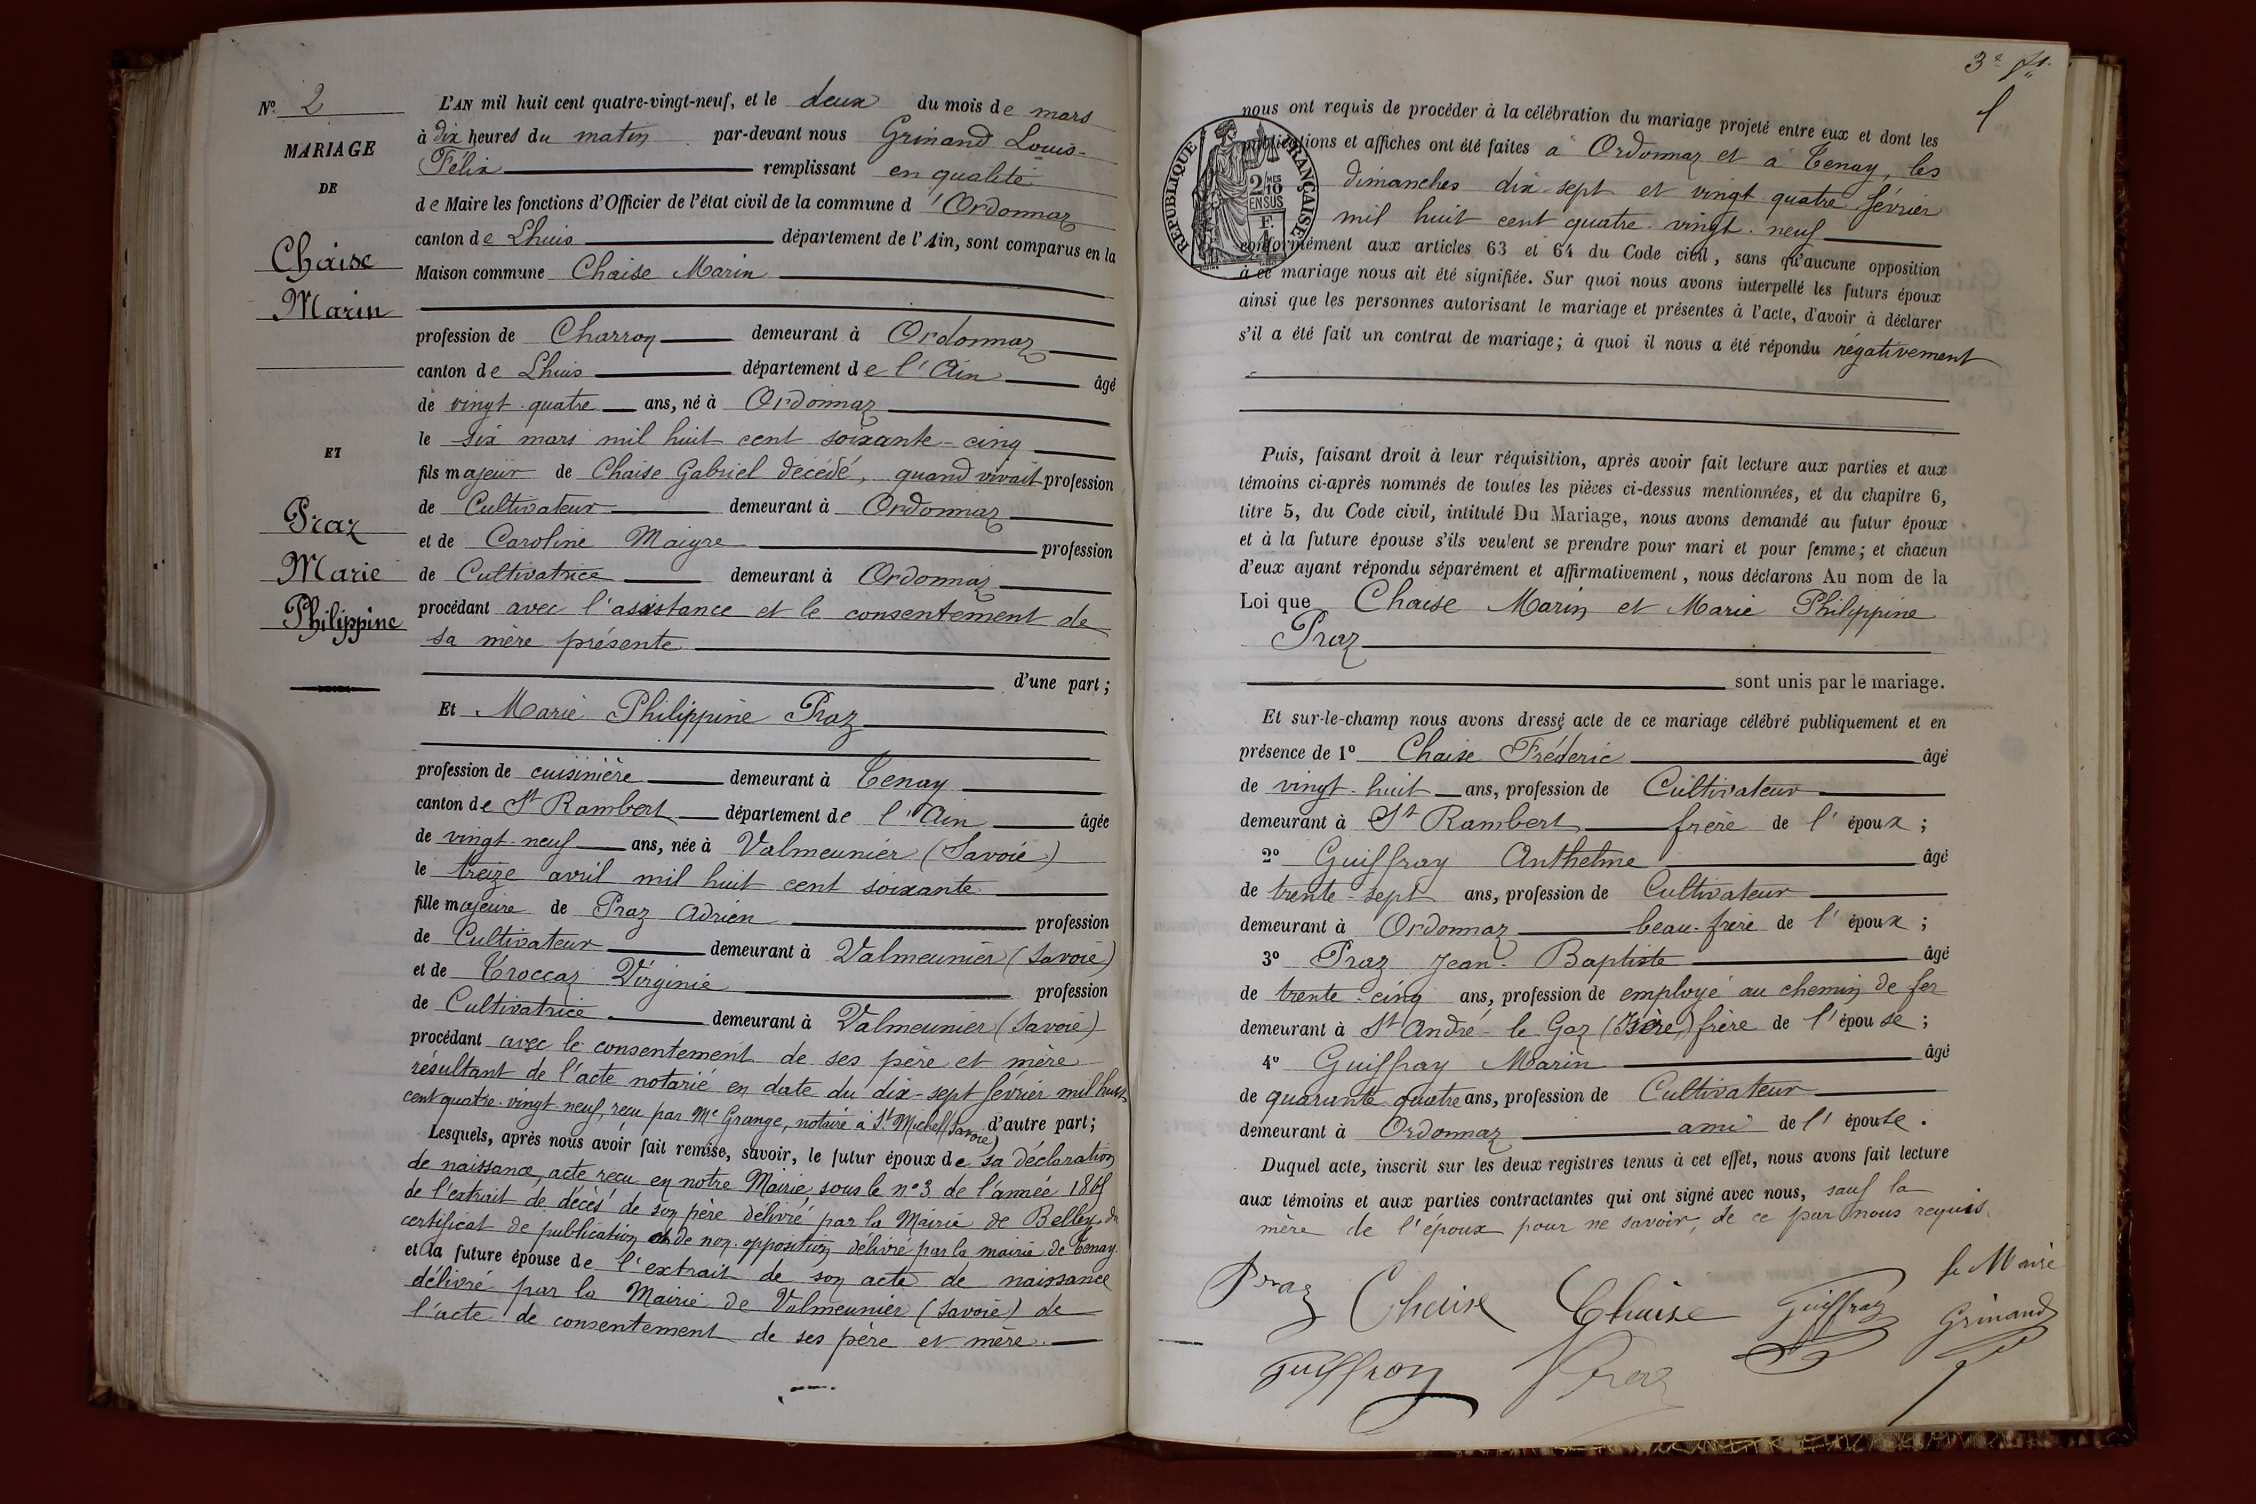 N° 2
MARIAGE
DE
Chaise
Marin
ET
Praz
Marie
Philippine
L'AN mil huit cent quatre-vingt-neuf, et le deux du mois de mars
à dix heures du matin par-devant nous Grinand Louis-
Félix remplissant en qualité
de Maire les fonctions d'Officier de l'état civil de la commune d'Ordonnaz
canton de Lhuis département de l'Ain, sont comparus en la
Maison commune Chaise Marin
profession de Charron demeurant à Ordonnaz
canton de Lhuis département de l'Ain âgé
de vingt-quatre ans, né à Ordonnaz
le six mars mil huit cent soixante-cinq
fils majeur de Chaise Gabriel décédé, quand vivait profession
de Cultivateur demeurant à Ordonnaz
et de Caroline Maigre profession
de Cultivatrice demeurant à Ordonnaz
procédant avec l'assistance et le consentement de
sa mère présente
d'une part;
Et Marie Philippine Praz
profession de cuisinière demeurant à Tenay
canton de St Rambert département de l'Ain âgée
de vingt-neuf ans, née à Valmeunier (Savoie)
le treize avril mil huit cent soixante
fille majeure de Praz Adrien profession
de Cultivateur demeurant à Valmeunier (Savoie)
et de Troccaz Virginie profession
de Cultivatrice demeurant à Valmeunier (Savoie)
procédant avec le consentement de ses père et mère
résultant de l'acte notarié en date du dix-sept février mil huit
cent quatre-vingt-neuf, reçu par Me Grange, notaire à St Michel (Savoie) d'autre part;
Lesquels, après nous avoir fait remise, savoir, le futur époux de sa déclaration
de naissance, acte reçu en notre Mairie, sous le n° 3 de l'année 1865
de l'extrait de décès de son père délivré par la Mairie de Belley, du
certificat de publication et de non-opposition délivré par la mairie de Tenay.
et la future épouse de l'extrait de son acte de naissance
délivré par la Mairie de Valmeunier (Savoie) de
l'acte de consentement de ses père et mère.
3e
nous ont requis de procéder à la célébration du mariage projeté entre eux et dont les
publications et affiches ont été faites à Ordonnaz et à Tenay, les
dimanches dix-sept et vingt quatre février
mil huit cent quatre-vingt-neuf
RÉPUBLIQUE FRANÇAISE
2/10 MES EN SUS
conformément aux articles 63 et 64 du Code civil, sans qu'aucune opposition
à ce mariage nous ait été signifiée. Sur quoi nous avons interpellé les futurs époux
ainsi que les personnes autorisant le mariage et présentes à l'acte, d'avoir à déclarer
s'il a été fait un contrat de mariage; à quoi il nous a été répondu négativement
Puis, faisant droit à leur réquisition, après avoir fait lecture aux parties et aux
témoins ci-après nommés de toutes les pièces ci-dessus mentionnées, et du chapitre 6,
titre 5, du Code civil, intitulé Du Mariage, nous avons demandé au futur époux
et à la future épouse s'ils veulent se prendre pour mari et pour femme; et chacun
d'eux ayant répondu séparément et affirmativement, nous déclarons Au nom de la
Loi que Chaise Marin et Marie Philippine
Praz
sont unis par le mariage.
Et sur-le-champ nous avons dressé acte de ce mariage célébré publiquement et en
présence de 1° Chaise Fréderic âgé
de vingt-huit ans, profession de Cultivateur
demeurant à St Rambert frère de l'époux;
2° Guiffray Anthelme âgé
de trente-sept ans, profession de Cultivateur
demeurant à Ordonnaz beau-frère de l'époux;
3° Praz Jean-Baptiste âgé
de trente-cinq ans, profession de employé au chemin de fer
demeurant à St André-le Gaz (Isère) frère de l'épouse;
4° Guiffray Marin âgé
de quarante quatre ans, profession de Cultivateur
demeurant à Ordonnaz ami de l'épouse.
Duquel acte, inscrit sur les deux registres tenus à cet effet, nous avons fait lecture
aux témoins et aux parties contractantes qui ont signé avec nous, sauf la
mère de l'époux pour ne savoir, de ce par nous requis.
le Maire
Praz Chaise Chaise Guiffray Grinand
Guiffray Praz